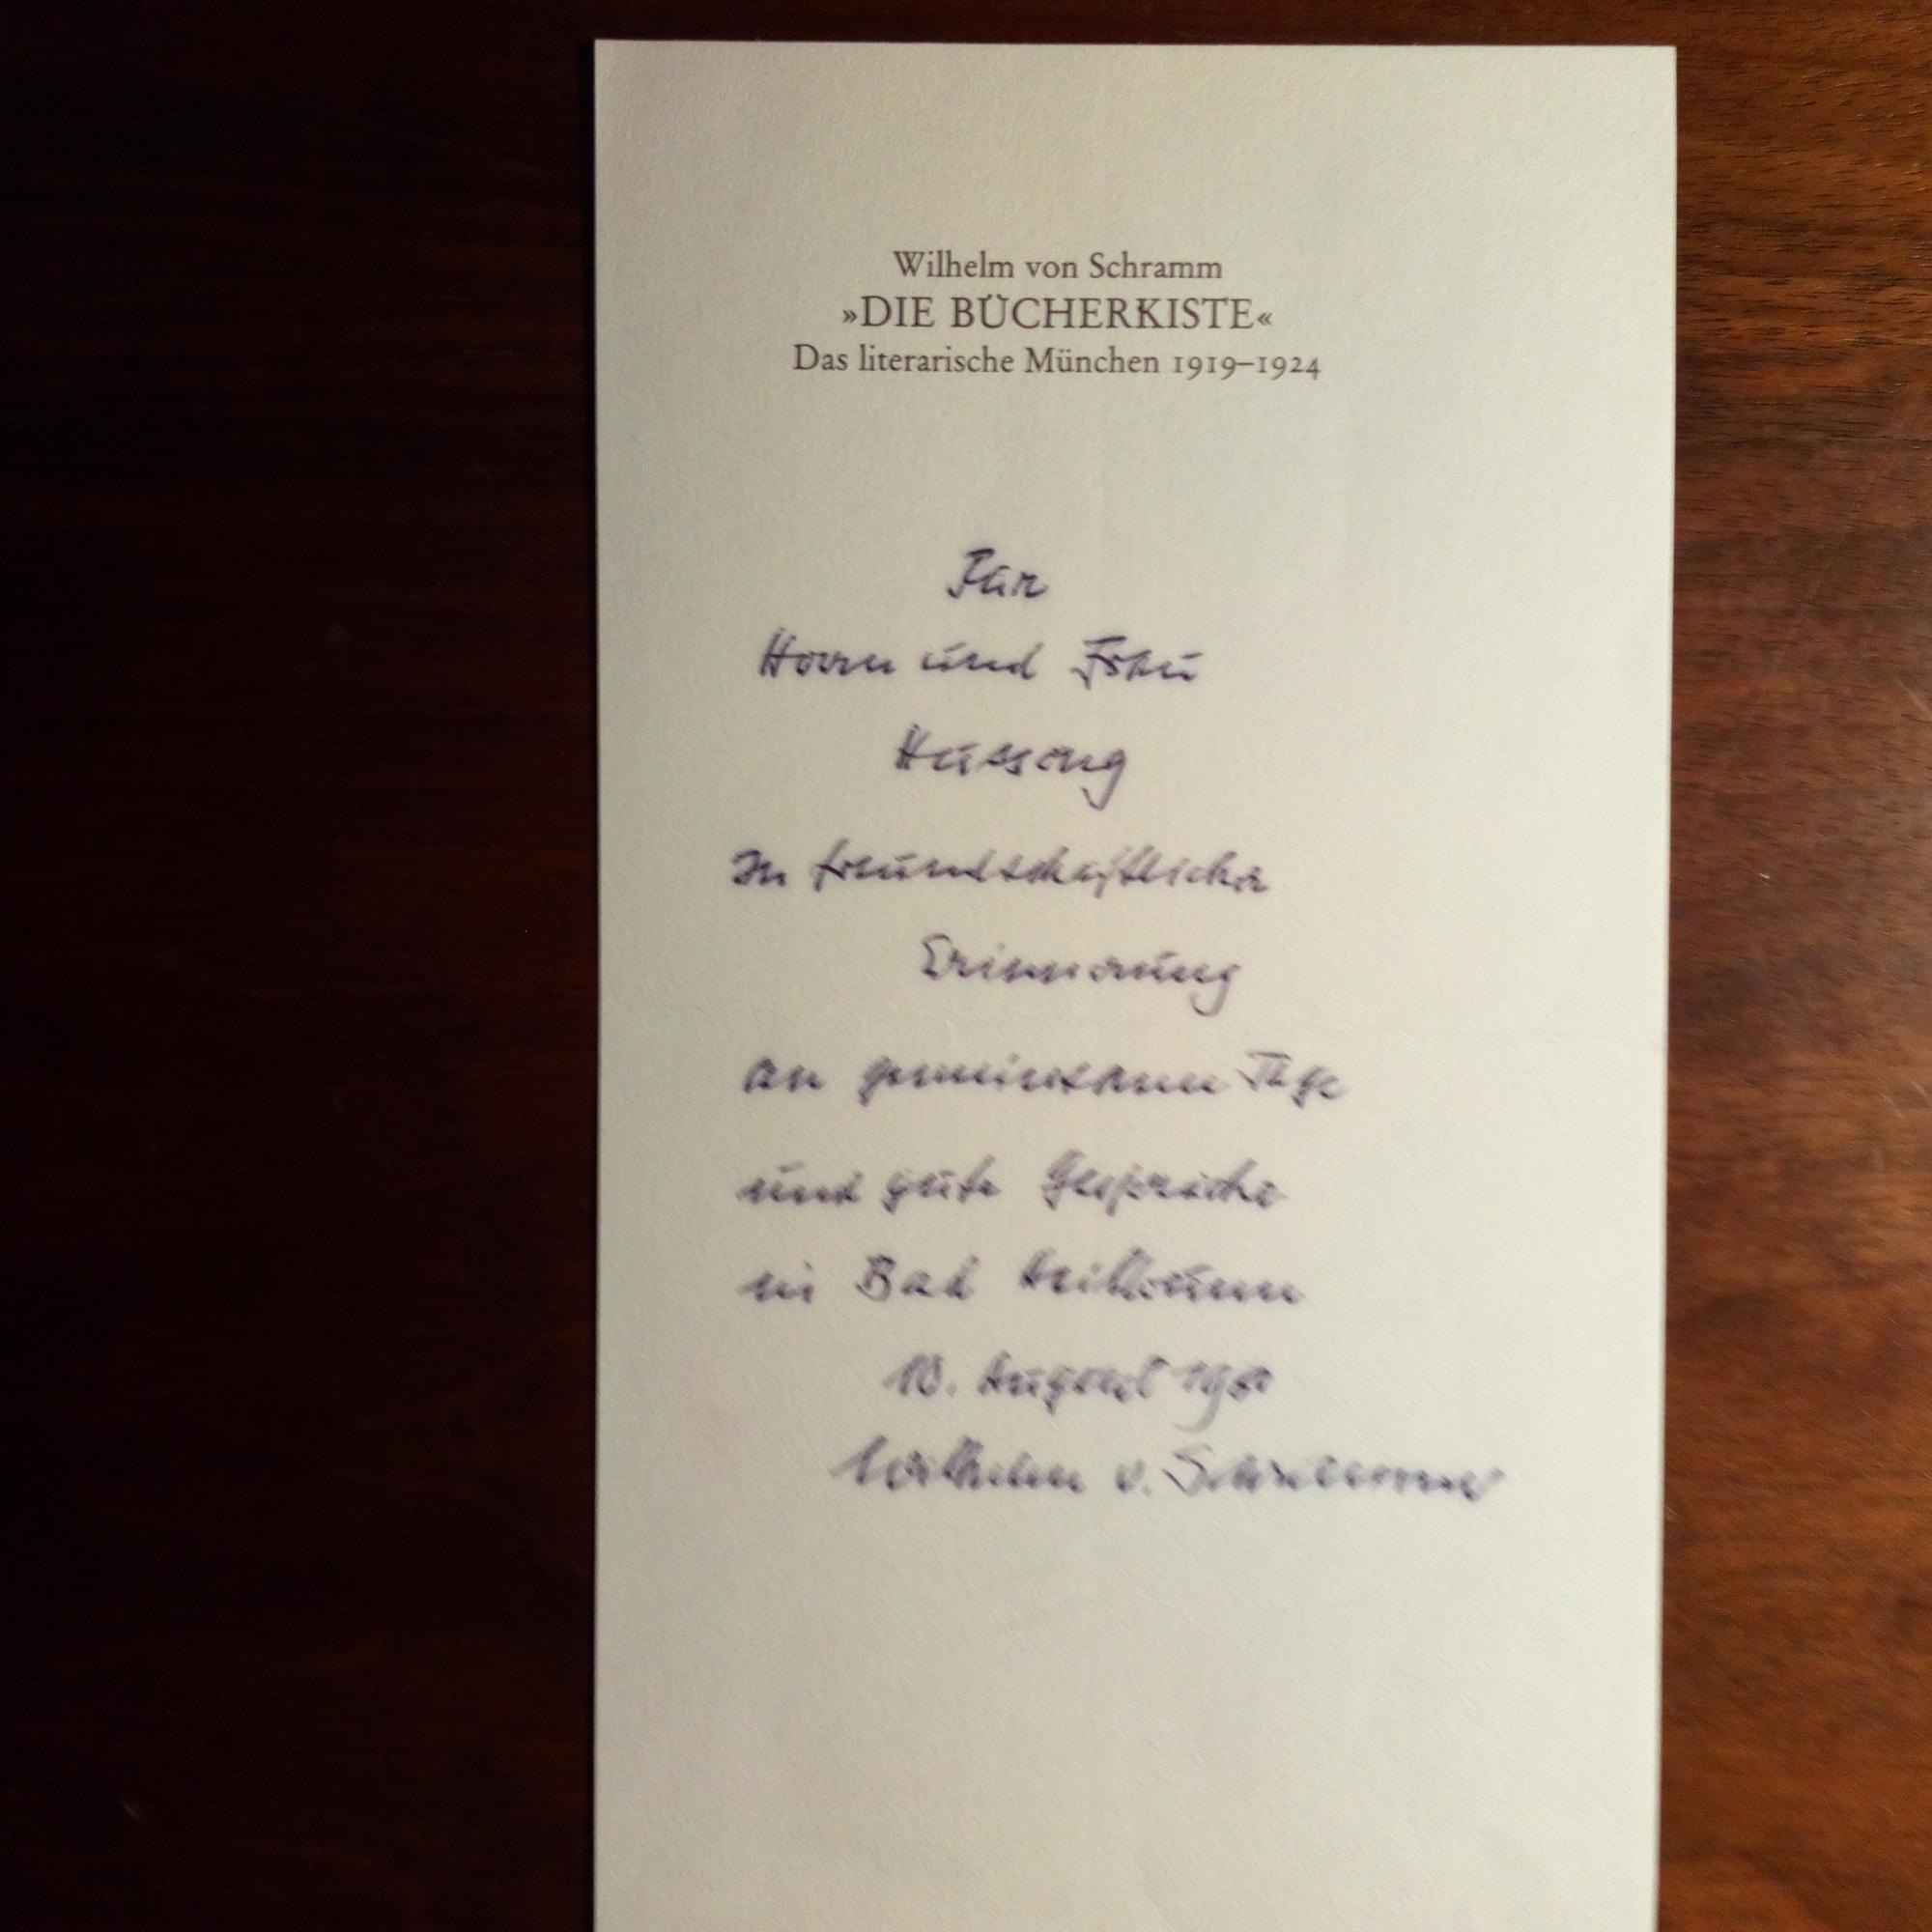 Wilhelm von Schramm
»DIE BÜCHERKISTE«
Das literarische München 1919–1924
Für
Herrn und Frau
Hussong
in freundschaftlicher
Erinnerung
an gemeinsame Tage
und gute Gespräche
in Bad Heilbrunn
10. August 1980
Wilhelm v. Schramm